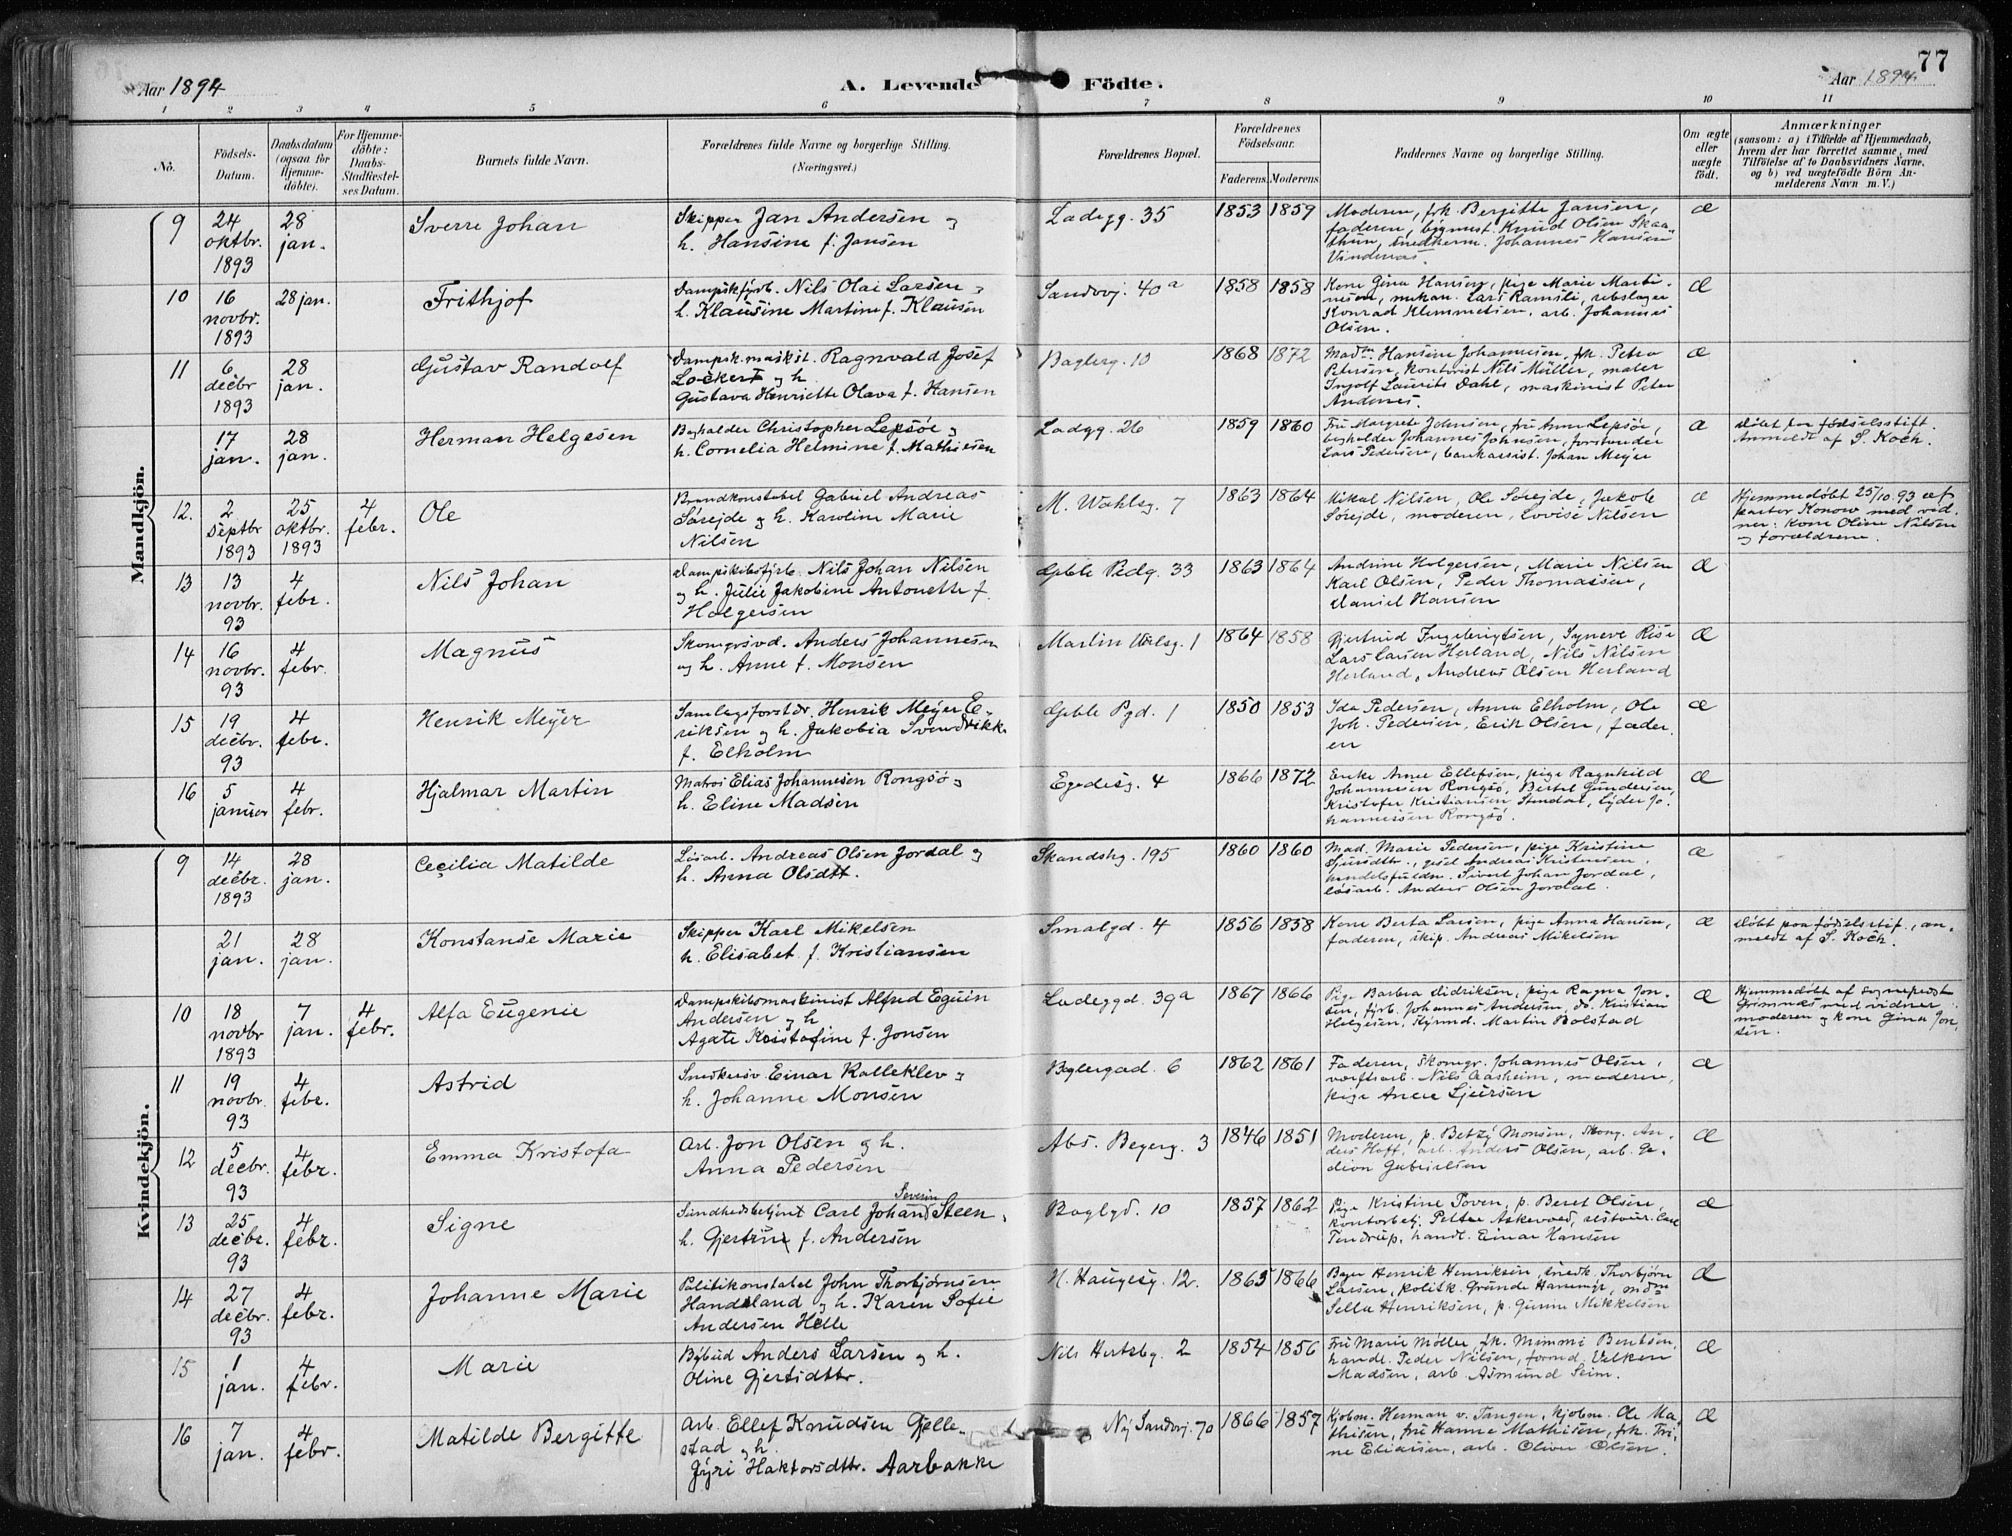 77
Aar 1894
A. Levende Födte.
Aar 1894
1 2 3 4 5 6 7 8 9 10 11
No.
Födsels-
Datum.
Daabsdatum
(ogsaa for
Hjemme-
döbte).
For Hjemme-
döbte:
Daabs-
Stadfæstel-
ses Datum.
Barnets fulde Navn.
Forældrenes fulde Navne og borgerlige Stilling.
(Næringsvei.)
Forældrenes Bopæl.
Forældrenes
Födselsaar.
Faderens. Moderens.
Faddernes Navne og borgerlige Stilling.
Om ægte
eller
uægte
født.
Anmærkninger
(sansom: a) i Tilfælde af Hjemmedaab,
hvem der har forrettet samme, med
Tilföielse af to Daabsvidners Navne,
og b) ved uægtefödte Börn An-
melderens Navn m. V.)
Mandkjön.
9 24 oktbr. 1893 28 jan. Sverre Johan
Skipper Jan Andersen og
h. Hansine f. Jansen
Ladegg. 35 1853 1859
Moderen, frk Bergitte Jansen,
faderen, bygmest. Knud Olsen Skaa-
thun, snedkerm. Johannes Hansen
Vindenæs.
æ
10 16 novbr. 1893 28 jan. Frithjof
Dampskfyrb. Nils Olai Larsen og
h. Klausine Martine f. Klausen
Sandvg. 40a 1858 1858
Kone Gina Hansen, pige Marie Marti-
nesen, mekan. Lars Ramsli, rebslager
Konrad Klemmetsen, arb. Johannes
Olsen.
æ
11 6 decbr 1893 28 jan. Gustav Randolf
Dampsk.maskst. Ragnvald Josef
Lockert og h.
Gustava Henriette Olava f. Hansen
Baglerg. 10 1868 1872
Madm Hansine Johannesen, frk. Petra
Petersen, kontorist Nils Müller, maler
Ingolf Laurits Dahl, maskinist Peter
Andersen.
æ
17 jan. 28 jan. Herman Helgesen
Bogholder Christopher Lepsøe og
h. Cornelia Helmine f. Mathiesen
Ladgg. 26 1859 1860
Fru Margrete Johnsen, fru Anna Lepsøe,
bogholder Johannes Johnsen, forstander
Lars Pedersen, bankassist. Johan Meyer
æ
døbt paa fødselsstift.
Anmeldt af S. Koch.
12. 2 septbr 1893 25 oktbr. 1893 4 febr. Ole
Brandkonstabel Gabriel Andreas
Sørejde og h. Karoline Marie
Nilsen
M. Wahlsg. 7 1863 1864
Mikal Nilsen, Ole Sørejde, Jakob
Sørejde, moderen, Lovise Nilsen
æ
Hjemmedøbt 25/10.93 af
pastor Konow med vid-
ner: kone Oline Nilsen
og forældrene.
13 13 novbr. 93 4 febr. Nils Johan
Dampskibsfyrb. Nils Johan Nilsen
og h. Julie Jakobine Antonette f.
Holgersen
Gble Pedg. 33 1863 1864
Andrine Holgersen, Marie Nilsen
Karl Olsen, Peder Thomassen,
Daniel Hansen
æ
14 16 novbr. 93 4 febr. Magnus
Skomgrsvd. Anders Johannesen
og h. Anne f. Monsen
Martin Walsg. 1 1864 1858
Gjertrud Ingebrigtsen, Synneve Rise
Lars Larsen Herland, Nils Nilsen
Herland, Andreas Olsen Herland
æ
15 19 decbr. 93 4 febr. Henrik Meyer
Samlagsforstdr. Henrik Meyer E-
riksen og h. Jakobia Svendrikke
f. Elholm
Gble Pgd. 1 1850 1853
Ida Pedersen, Anna Elholm, Ole
Joh. Pedersen, Erik Olsen, fader-
en
æ
16 5 januar 4 febr. Hjalmar Martin
Matros Elias Johannesen Rongsø og
h. Eline Madsen
Egedesg. 4 1866 1872
Enke Anne Ellefsen, pige Ragnhild
Johannesen Rongsø, Bertel Gundersen,
Kristofer Kristiansen Stendal, Lyder Jo-
hannessen Rongsø.
æ
Kvindekjön.
9 14 decbr. 1893 28 jan. Cecilia Matilde
Løsarb. Andreas Olsen Jordal og
h. Anna Olsdtt.
Skandshg. 195 1860 1860
Mad. Marie Pedersen, pige Kristine
Sjursdtr., gesel Andreas Kristensen,
handelsfuldm. Sivert Johan Jordal,
løsarb. Anders Olsen Jordal.
æ
21 jan. 28 jan. Konstanse Marie
Skipper Karl Mikelsen
h. Elisabet f. Kristiansen
Smalgd. 4 1856 1858
Kone Berta Larsen, pige Anna Hansen,
faderen, skip. Andreas Mikelsen
æ
døbt paa fødselsstif., an-
meldt af S. Koch.
10 18 novbr 1893 7 jan. 4 febr. Alfa Eugenie
Dampskibsmaskinist Alfred Eguin
Andersen og h
Agate Kristofine f. Jonsen
Ladeggd. 39a 1867 1866
Pige Barbra Didriksen, pige Ragna Jon-
sen, fyrb. Johannes Andersen, do. Kristian
Helgesen, Styrmd. Martin Bolstad
æ
Hjemmedøbt af sogneprest
Grimnes med vidner
moderen og kone Gina Jon-
sen.
11 19 novbr. 93 4 febr. Astrid
Snedkersv. Einar Kalleklev og
h. Johanne Monsen
Baglergad. 6 1862 1861
Faderen, skomgr. Johannes Olsen,
værftsarb. Nils Aasheim, moderen,
pige Anne Sjursen
æ
12 5 decbr. 93 4 febr. Emma Kristofa
Arb. Jon Olsen og h.
Anna Pedersen
Abs. Beyerg. 3 1846 1851
Moderen, p. Betzy Monsen, Skomg. An-
ders Hoff, arb. Anders Olsen, arb. Ge-
dion Gabrielsen
æ
13 25 decbr. 93 4 febr. Signe
Sundhedsbetjent Carl Johan Severin Steen,
h. Gjertrue f. Andersen
Baglgd. 10 1857 1862
Pige Kristine Toven, p. Beret Olsen,
kontorbetj. Petter Askevold, restaur. Carl
Tendrup, handl. Einar Hansen
æ
14 27 decbr. 93 4 febr. Johanne Marie
Politikonstabel John Thorbjørnsen
Handeland og h. Karen Sofie
Andersen Helle
H. Haugesg. 12. 1865 1866
Bager Henrik Henriksen, snedk. Thorbjørn
Larsen, politik. Grunde , mdm
Sella Henriksen, p. Gurine Mikkelsen
æ
15 1 jan. 4 febr. Marie
Bybud Anders Larsen og h.
Oline Gjertsdttr.
Nils Hertzbg. 2 1854 1856
Fru Marie Møller, frk. Mimmi Bentsen,
handl. Peder Nilsen, formd. Velken
Madsen, arb. Asmund Seim.
æ
16 7 jan. 4 febr. Matilde Bergitte
Arb. Ellef Knudsen Gjelle-
stad og h.
Gyri Haktorsdttr. Aarbakke
Ny Sandvg. 70 1866 1857
Kjøbm. Herman v. Tangen, kjøbm. Ole Ma-
thisen, fru Hanne Mathisen, frk. Tri-
ne Eliassen, arb. Oliver Olsen.
æ